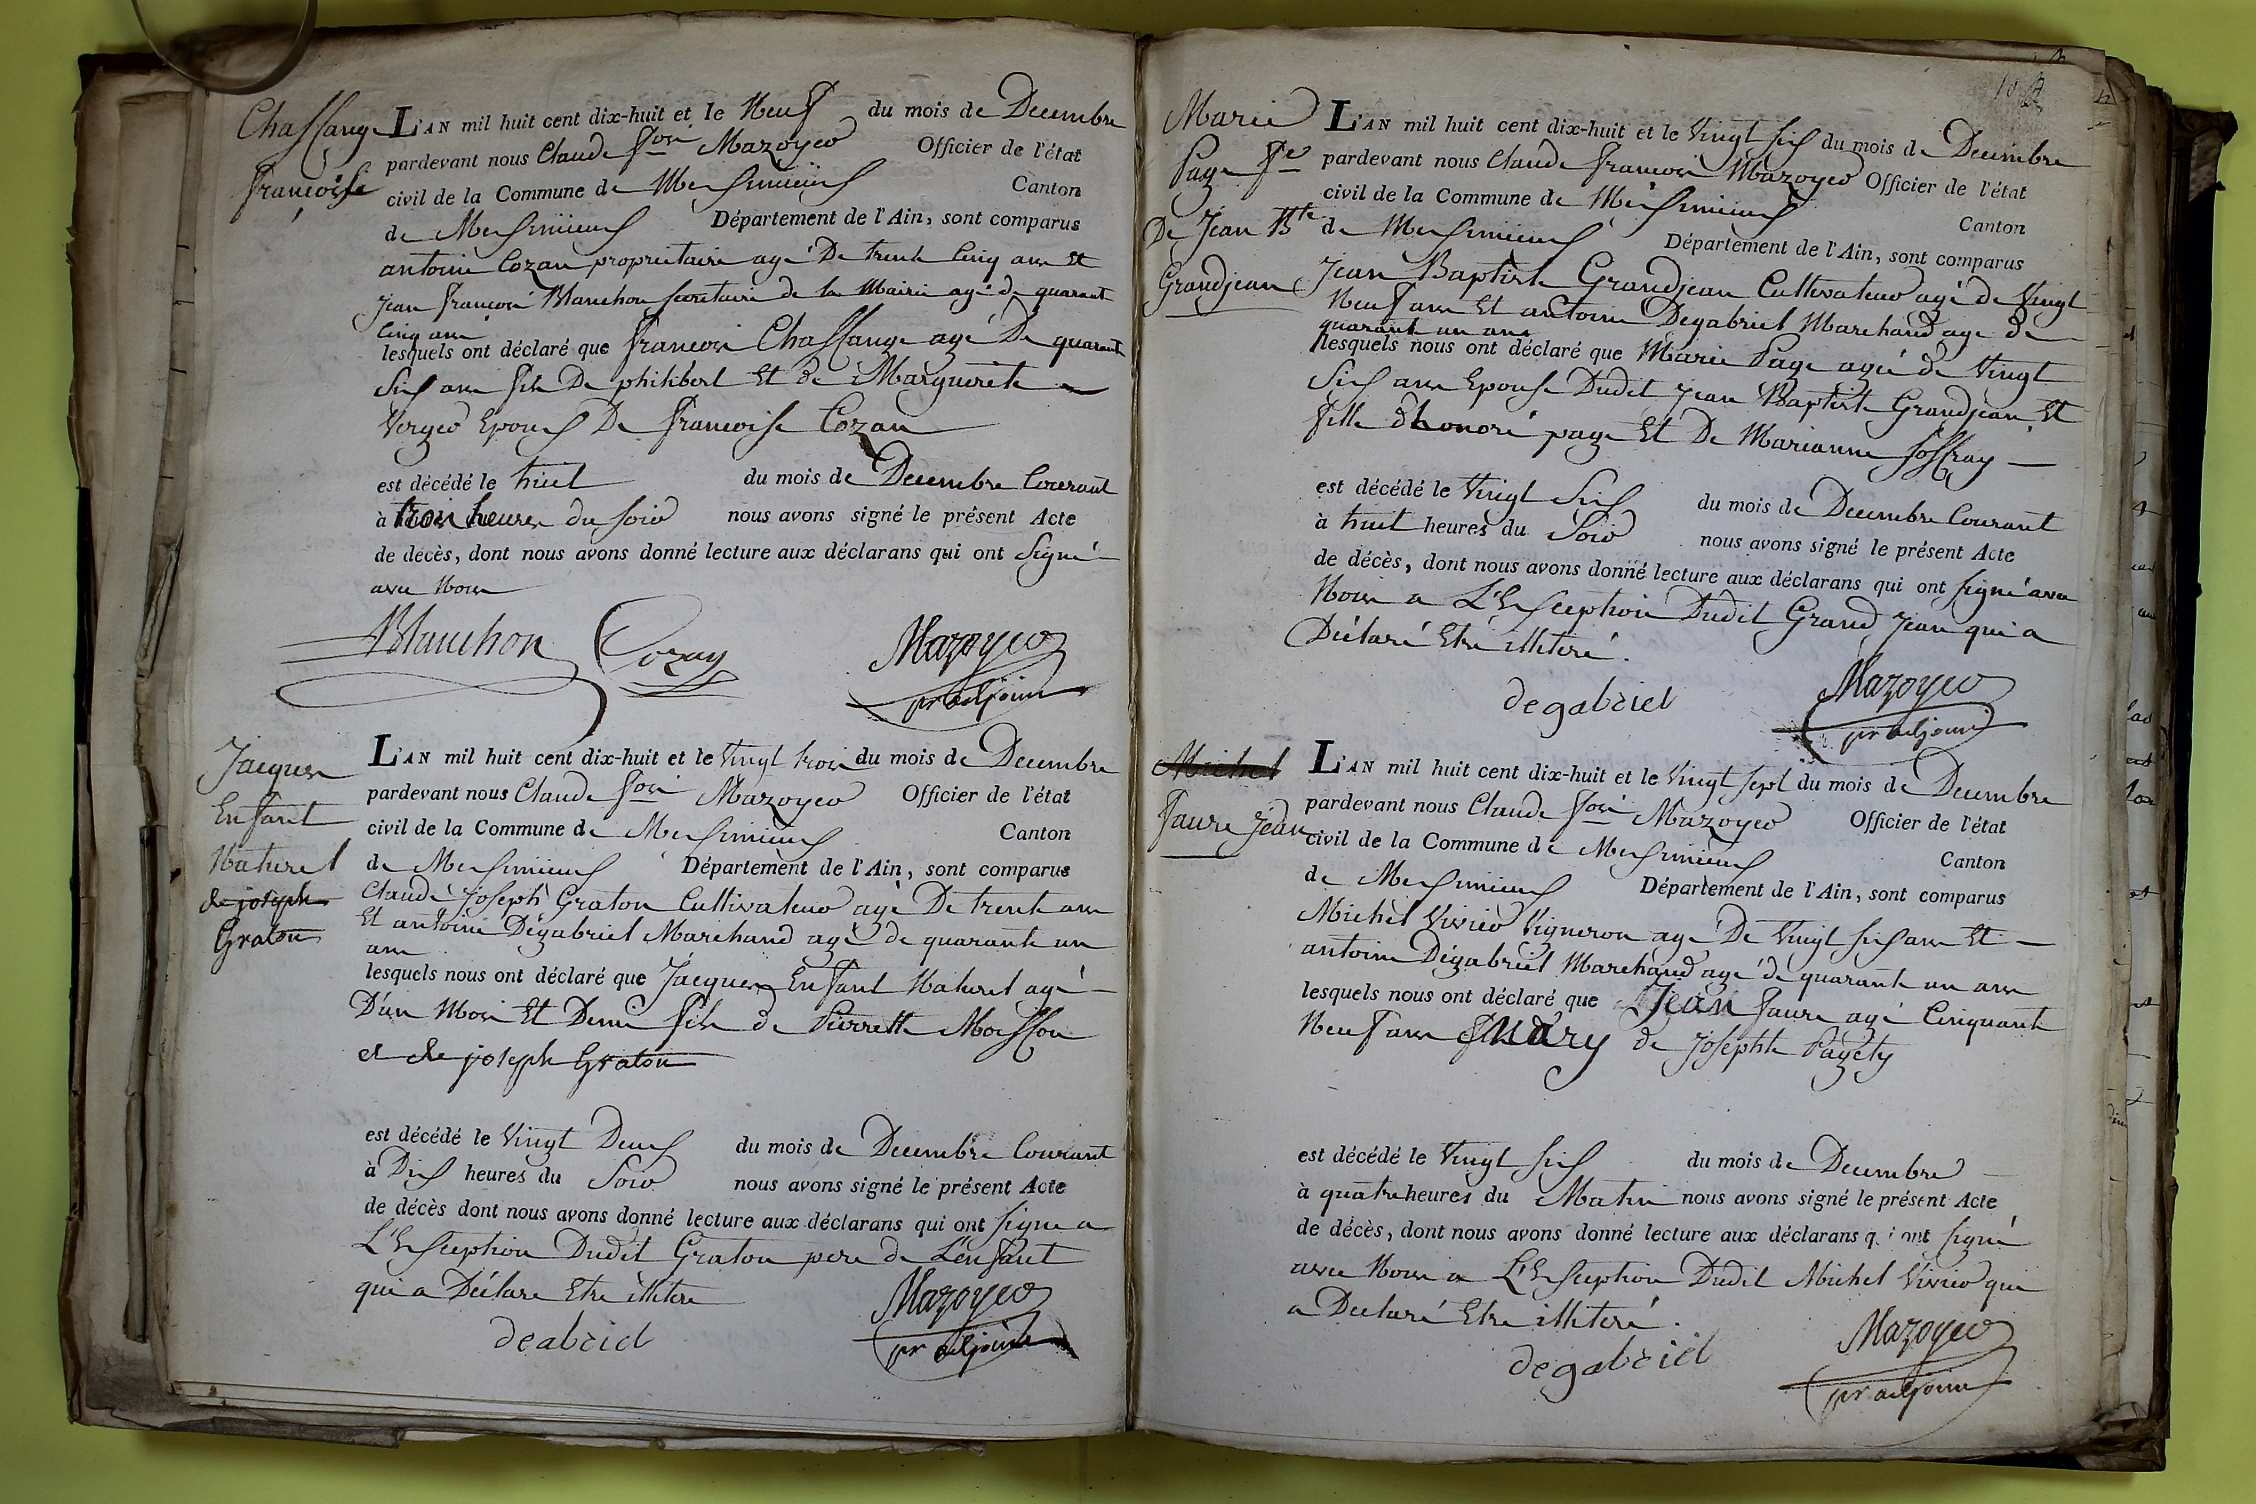 Chassange
françoise
L'AN mil huit cent dix-huit et le Neuf du mois de Decembre
pardevant nous Claude fois Mazoyer Officier de l'état
civil de la Commune de Messimieux Canton
de Messimieux Département de l'Ain, sont comparus
antoine Cozan propriétaire agé De trente Cinq ans Et
Jean francois Blanchon secretaire de la Mairie agé de quarant
Cinq ans
lesquels ont déclaré que francois Chassange agé De quarant
Six ans fils De philibert Et de Marguerite
Verger Epoux De francoise Cozan
est décédé le huit du mois de Decembre Courant
à trois heures du soir nous avons signé le présent Acte
de décès, dont nous avons donné lecture aux déclarans qui ont Signé
avec Nous
Blanchon Cozan Mazoyer
pr adjoint
Jacques
Enfant
Naturel
de joseph
Graton
L'AN mil huit cent dix-huit et le Vingt trois du mois de Decembre
pardevant nous Claude fois Mazoyer Officier de l'état
civil de la Commune de Messimieux Canton
de Messimieux Département de l'Ain, sont comparus
Claude Joseph Graton Cultivateur agé De trente ans
Et antoine Dégabriel Marchand agé de quarante un
ans
lesquels nous ont déclaré que Jacques Enfant Naturel agé
D'un Mois Et Demi fils de Pierrette Moisson
et de joseph Graton
est décédé le Vingt Deux du mois de Decembre Courant
à Dix heures du Soir nous avons signé le présent Acte
de décès dont nous avons donné lecture aux déclarans qui ont signé a
L'Exception Dudit Graton pere de L'enfant
qui a Déclaré Etre illiteré
deabriel Mazoyer
pr adjoint
Marie
Page fe
De Jean Bte
Grandjean
L'AN mil huit cent dix-huit et le Vingt six du mois de Decembre
pardevant nous Claude francois Mazoyer Officier de l'état
civil de la Commune de Messimieux Canton
de Messimieux Département de l'Ain, sont comparus
Jean Baptiste Grandjean Cultivateur agé de Vingt
Neuf ans Et antoine Degabriel Marchand age de
quarante un ans
lesquels nous ont déclaré que Marie Page agée de Vingt
Six ans Epouse Dudit Jean Baptiste Grandjean Et
fille d'honoré page Et De Marianne Joffray
est décédé le Vingt Six du mois de Decembre Courant
à huit heures du Soir nous avons signé le présent Acte
de décès, dont nous avons donné lecture aux déclarans qui ont signé avec
Nous a L'Exception Dudit Grand Jean qui a
Déclaré Etre illiteré.
degabriel Mazoyer
pr adjoint
Michel
Faure Jean
L'AN mil huit cent dix-huit et le Vingt sept du mois de Decembre
pardevant nous Claude fois Mazoyer Officier de l'état
civil de la Commune de Messimieux Canton
de Messimieux Département de l'Ain, sont comparus
Michel Vivier Vigneron agé De Vingt six ans Et
antoine Dégabriel Marchand agé de quarante un ans
lesquels nous ont déclaré que Jean faure agé Cinquante
Neuf ans Mary de Josephte Pagety
est décédé le Vingt six du mois de Decembre
à quatre heures du Matin nous avons signé le présent Acte
de décès, dont nous avons donné lecture aux déclarans qui ont signé
avec Nous a L'Exception Dudit Michel Vivier qui
a Déclaré Etre illiteré.
degabriel Mazoyer
pr adjoint